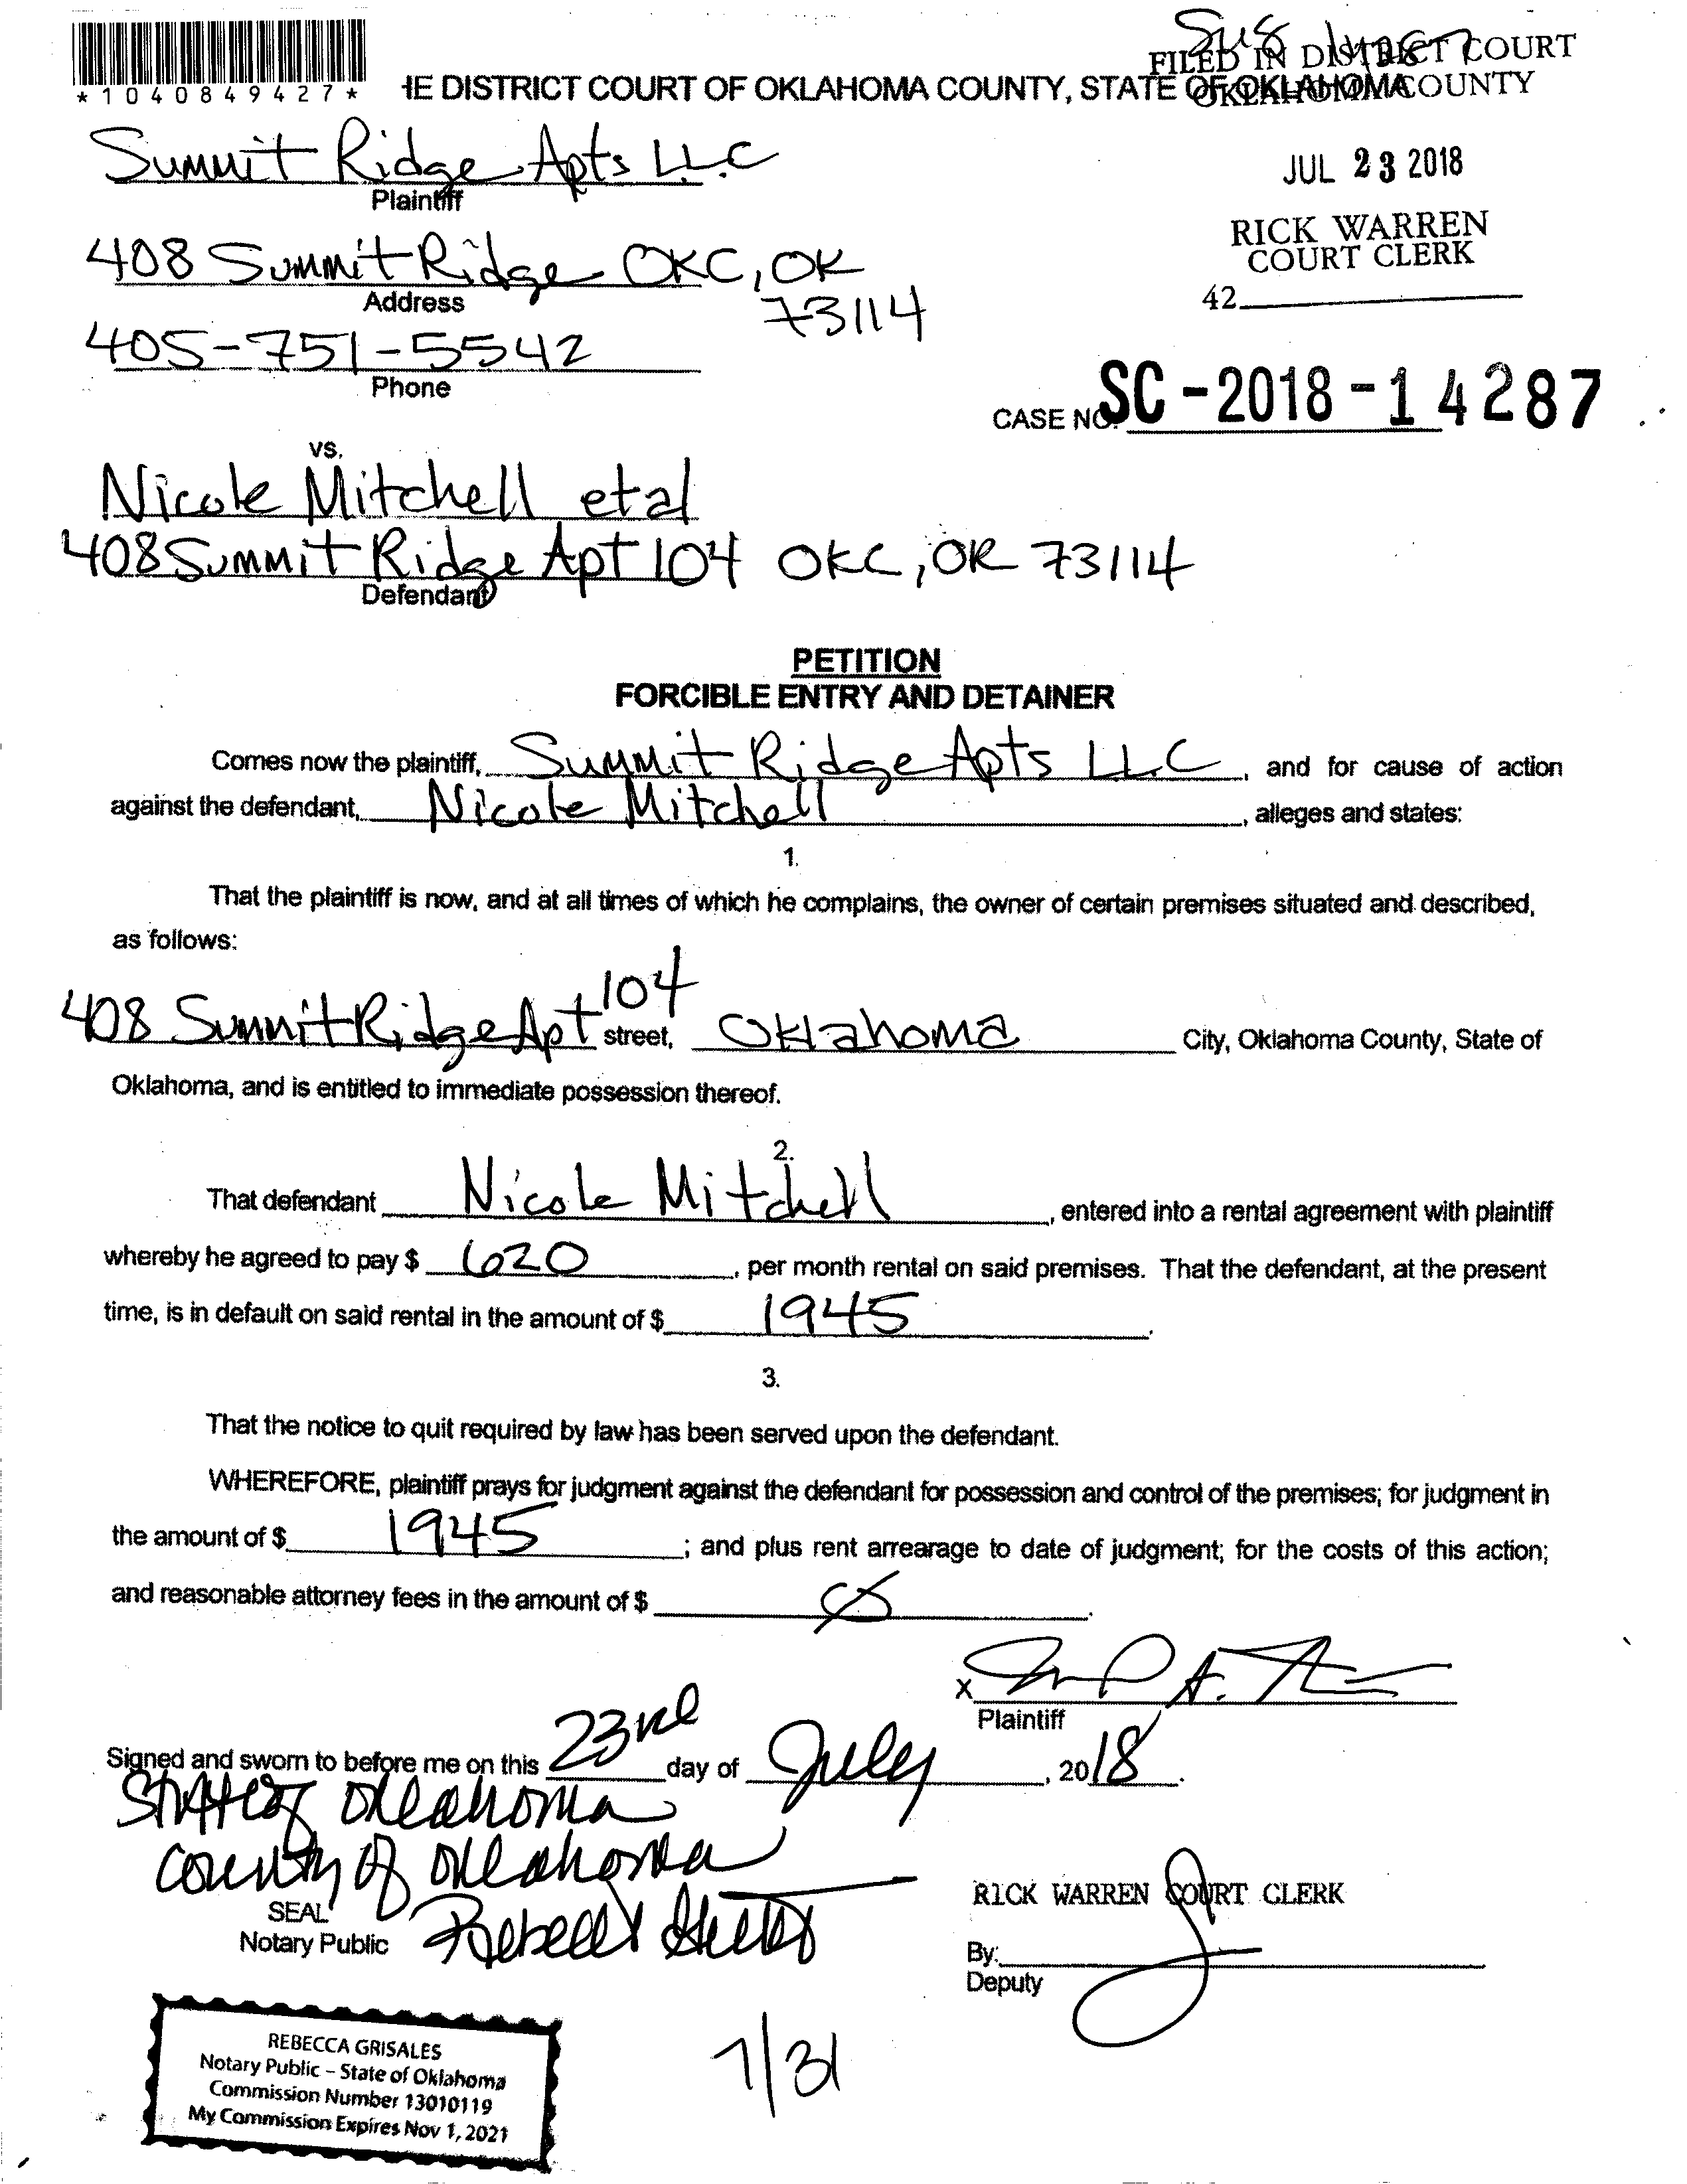 FILED IN DISTRICT COURT
OKLAHOMA COUNTY
*1040849427*
HE DISTRICT COURT OF OKLAHOMA COUNTY, STATE OF OKLAHOMA
Summit Ridge Apts LLC
Plaintiff
JUL 23 2018
RICK WARREN
COURT CLERK
408 Summit Ridge OKC, OK
73114
Address
42
405-751-5542
Phone
CASE NO. SC-2018-14287
vs.
Nicole Mitchell etal
408 Summit Ridge Apt 104 OKC, OK 73114
Defendant
PETITION
FORCIBLE ENTRY AND DETAINER
Comes now the plaintiff, Summit Ridge Apts LLC, and for cause of action
against the defendant, Nicole Mitchell, alleges and states:
1.
That the plaintiff is now, and at all times of which he complains, the owner of certain premises situated and described,
as follows:
408 Summit Ridge Apt 104 street, Oklahoma City, Oklahoma County, State of
Oklahoma, and is entitled to immediate possession thereof.
2.
That defendant Nicole Mitchell, entered into a rental agreement with plaintiff
whereby he agreed to pay $ 620, per month rental on said premises. That the defendant, at the present
time, is in default on said rental in the amount of $ 1945.
3.
That the notice to quit required by law has been served upon the defendant.
WHEREFORE, plaintiff prays for judgment against the defendant for possession and control of the premises; for judgment in
the amount of $ 1945; and plus rent arrearage to date of judgment; for the costs of this action;
and reasonable attorney fees in the amount of $ Ø.
X
Plaintiff
Signed and sworn to before me on this 23rd day of July, 2018.
State of Oklahoma
County of Oklahoma
SEAL
Notary Public
RICK WARREN COURT CLERK
By:
Deputy
REBECCA GRISALES
Notary Public – State of Oklahoma
Commission Number 13010119
My Commission Expires Nov 1, 2021
7/31